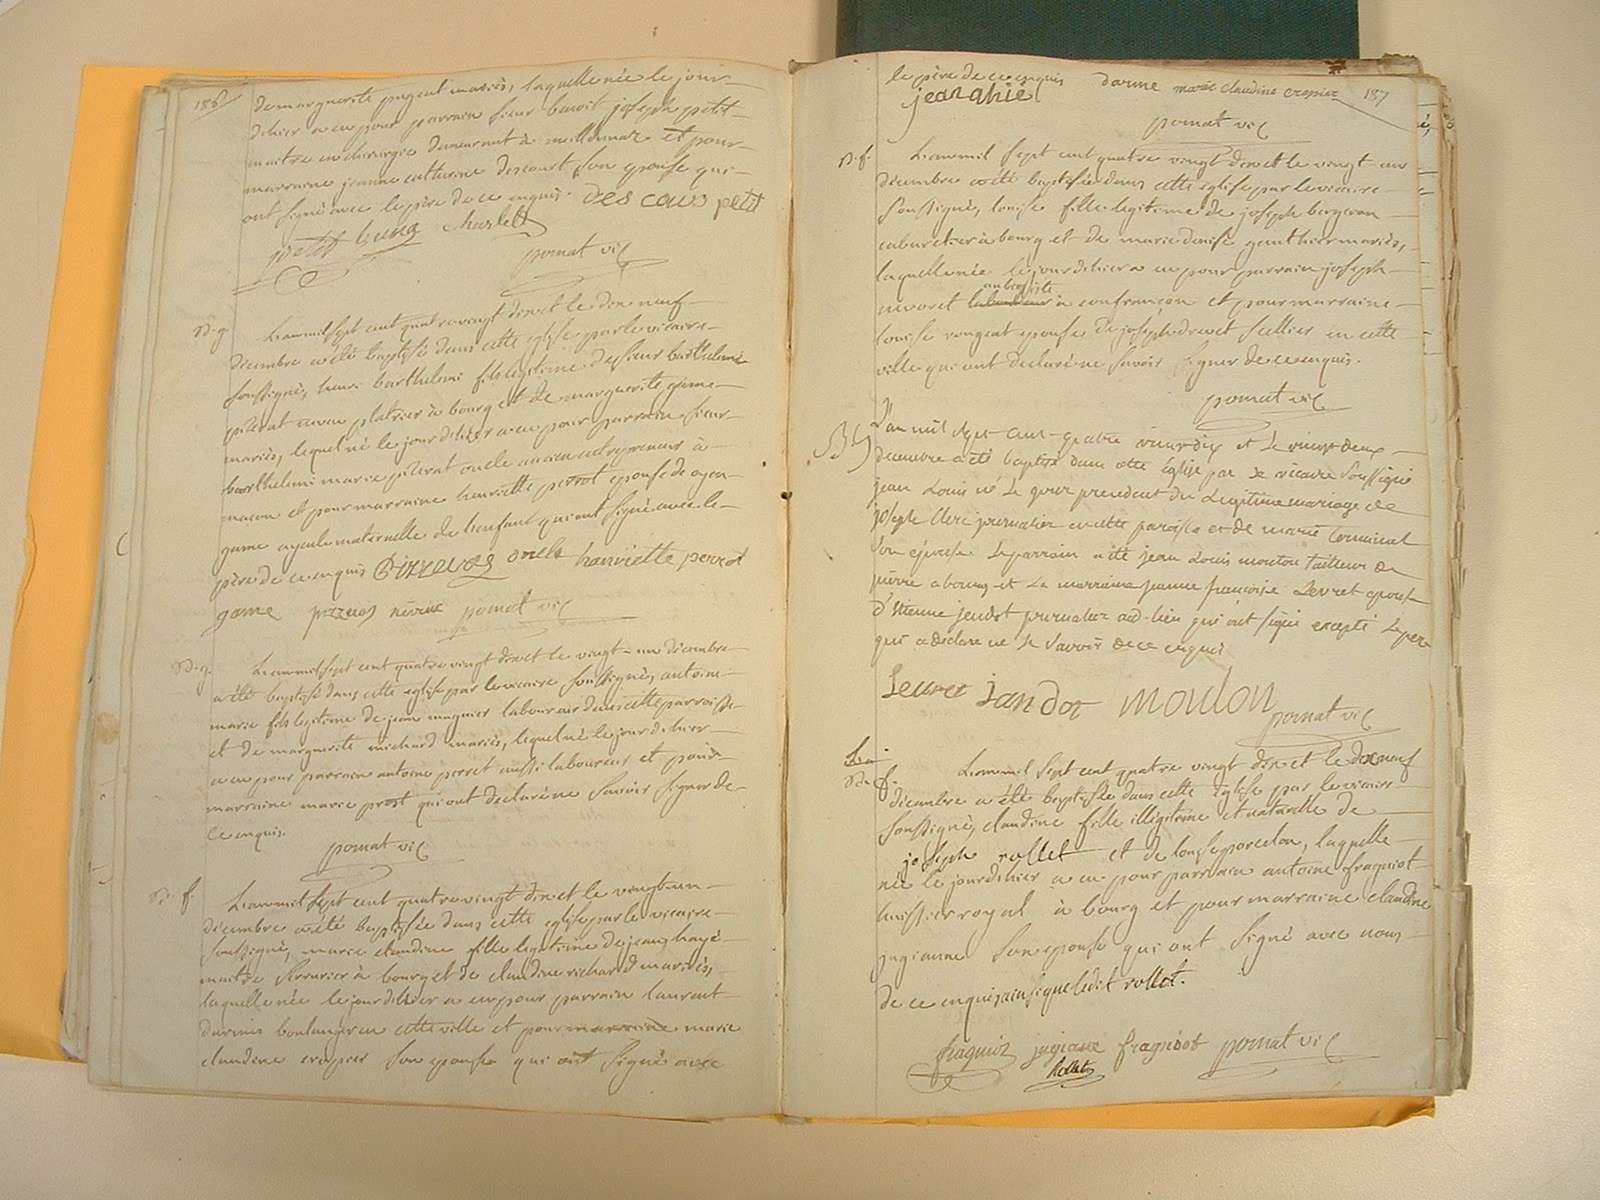 186
de marguerite pugent mariés, laquelle née le jour
d'hier a eu pour parrain sieur benoit joseph petit
maitre en chirurgie demeurant à et pour
marraine jeanne catherine descourt son epouse qui
ont signé avec le père de ce enquis. des cours petit
petit
pomat vic
B. g. L'an mil sept cent quatre vingt dix et le dix neuf
décembre a été baptisé dans cette eglise par le vicaire
soussigné, henri barthelemi fils légitime de sieur barthelemi
platrier à bourg et de marguerite game
mariés, lequel né le jour d'hier a eu pour parrain sieur
barthelemi marie oncle ancien entrepreneur à
macon et pour marraine henriette perrot epouse de
game ayeule maternelle de l'enfant qui ont signé avec le
père de ce enquis oncle hanriette perrot
game pomat vic
B. g. L'an mil sept cent quatre vingt dix et le vingt-un décembre
a été baptisé dans cette eglise par le vicaire soussigné, antoine
marie fils légitime de jean magnier laboureur dans cette parroisse
et de marguerite michard mariés, lequel né le jour d'hier
a eu pour parrain antoine perret aussi laboureur et pour
marraine marie prost qui ont declaré ne savoir signer de
ce enquis.
pomat vic
B. f. L'an mil sept cent quatre vingt dix et le vingt-un
décembre a été baptisée dans cette eglise par le vicaire
soussigné, marie claudine fille légitime de jean
maitre serrurier à bourg et de claudine richard mariés,
laquelle née le jour d'hier a eu pour parrain laurent
boulanger en cette ville et pour marraine marie
claudine crozier son epouse qui ont signé avec
le père de ce enquis darme marie claudine crosier 187
jean ahié
pomat vic
B. f. L'an mil sept cent quatre vingt dix et le vingt un
décembre a été baptisée dans cette eglise par le vicaire
soussigné, louise fille légitime de joseph bergeron
cabaretier à bourg et de marie denise gauthier mariés,
laquelle née le jour d'hier a eu pour parrain joseph
aubergiste
nevoret à confrançon et pour marraine
louise rongeat epouse de joseph drevet sellier en cette
ville qui ont declaré ne savoir signer de ce enquis.
pomat vic
B g L'an mil sept cent quatre vingt dix et le vingt deux
decembre a été baptisé dans cette église par le vicaire soussigné
jean Louis né le jour precedent du Legitime mariage de
joseph Clerc journalier en cette paroisse et de marie
Son épouse. Le parrain a été jean Louis mouton tailleur de
pierre a bourg et La marraine jeanne françoise Levret epouse
d'Etienne jendot journalier aud. lieu qui ont signé excepté Le pere
qui a declaré ne le savoir de ce enquis
Leuret jandot moulon
pomat vic
B. f. L'an mil sept cent quatre vingt dix et le dix neuf
décembre a été baptisée dans cette église par le vicaire
soussigné, claudine fille illégitime et naturelle de
joseph rollet et de louise porcelon, laquelle
née le jour d'hier a eu pour parrain antoine fragniot
huissier royal à bourg et pour marraine claudine
jugianne son epouse qui ont signé avec nous
de ce enquis ainsi que ledit rollet.
fragniot jugiane fragniot pomat vic
Rollet